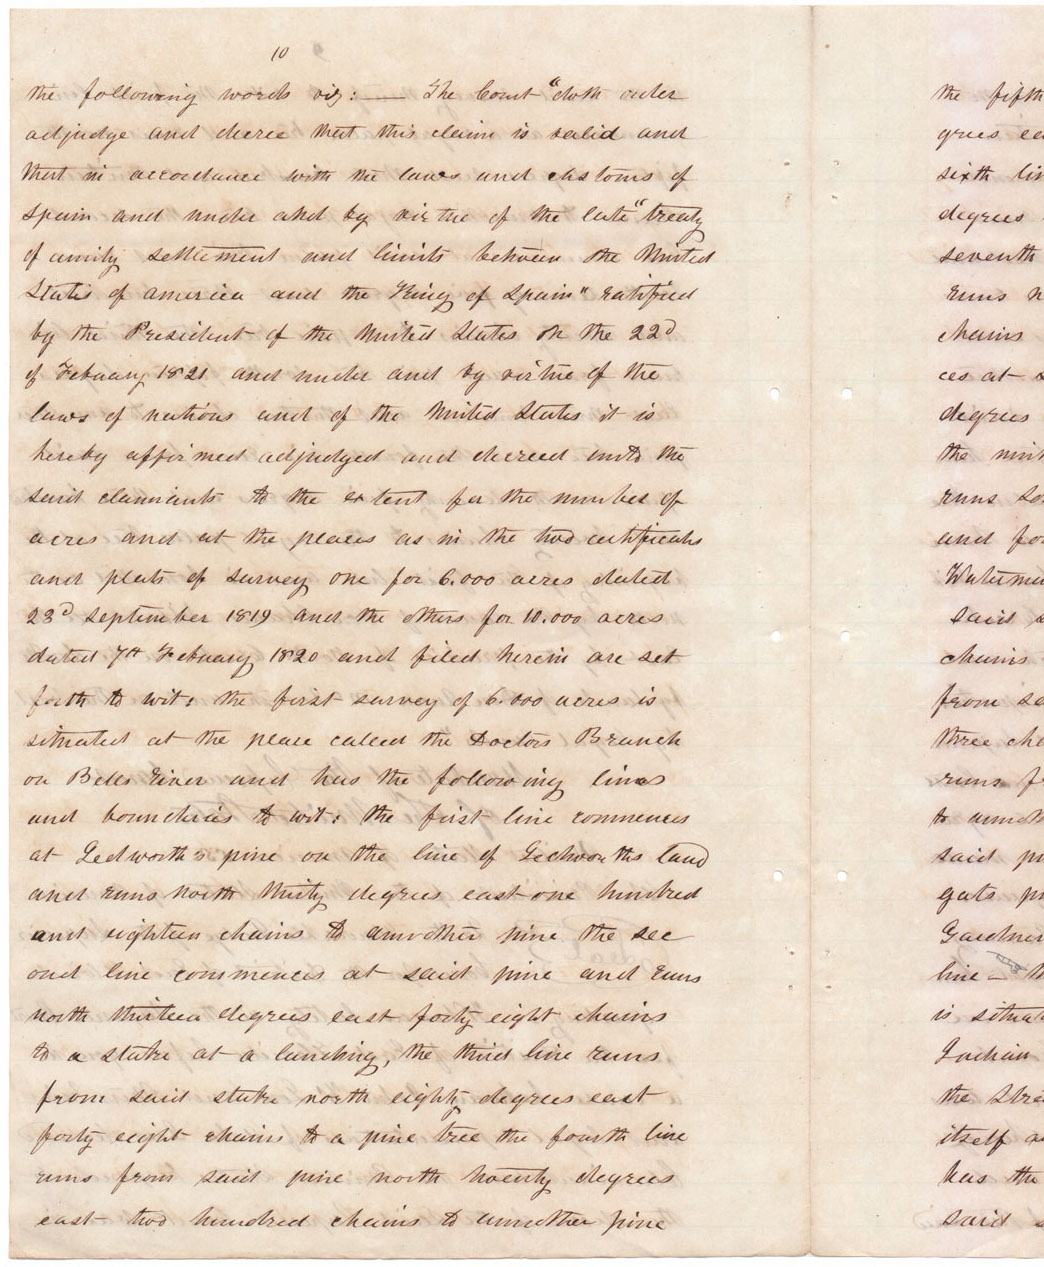 10
the following words viz: — The Court "doth order
adjudge and decree that this claim is valid and
that in accordance with the laws and customs of
Spain and under and by virtue of the late "treaty
of amity settlement and limits between the United
States of America and the King of Spain" ratified
by the President of the United States on the 22d
of Febuary 1821 and under and by virtue of the
laws of nations and of the United States it is
hereby affirmed adjudged and decreed unto the
said claimants to the extent for the number of
acres and at the places as in the two certificats
and plats of survey one for 6.000 acres dated
23d September 1819 and the others for 10.000 acres
dated 7th February 1820 and filed herein are set
forth to wit: the first survey of 6.000 acres is
situated at the place called the Doctors Branch
on Bells River and has the following lines
and boundries to wit: the first line commences
at pine on the line of land
and runs North thirty degrees east one hundred
and eighteen chains to annother pine the sec
ond line commences at said pine and runs
north thirteen degrees east forty eight chains
to a stake at a landing, the third line runs
from said stake north eighty degrees east
forty eight chains to a pine tree the fourth line
runs from said pine north twenty degrees
east two hundred chains to annother pine
the fifth
sixth
degrees
seventh
runs
chains
ces at
degrees
the
runs
and
said
chains
from
three
runs
to
said
Gardner
line
is
Indian
the
itself
has the
said